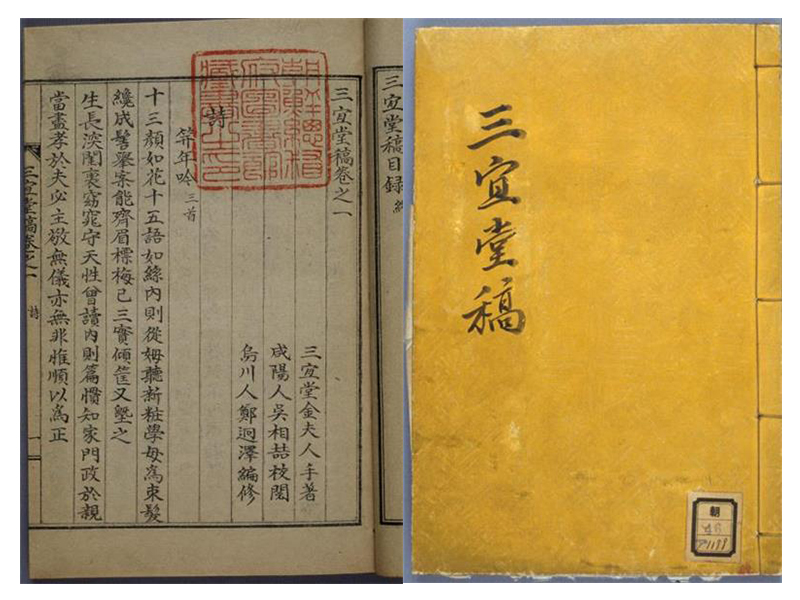 三宜堂稿
朝
46
三宜堂稿目録 終
朝鮮總督
府圖書館
藏書之印
三宜堂稿卷之一
三宜堂金夫人手著
咸陽人吳相喆校閱
烏川人鄭迥澤編修
詩
笄年吟 三首
十三顔如花十五語如絲內則從姆聽新粧學母爲束髮
纔成髻擧案能齊眉標梅已三實傾筐又墍之
生長深閨裏窈窕守天性曾讀內則篇慣知家門政於親
當盡孝於夫必主敬無儀亦無非惟順以爲正
三宜堂稿卷之一 詩 一